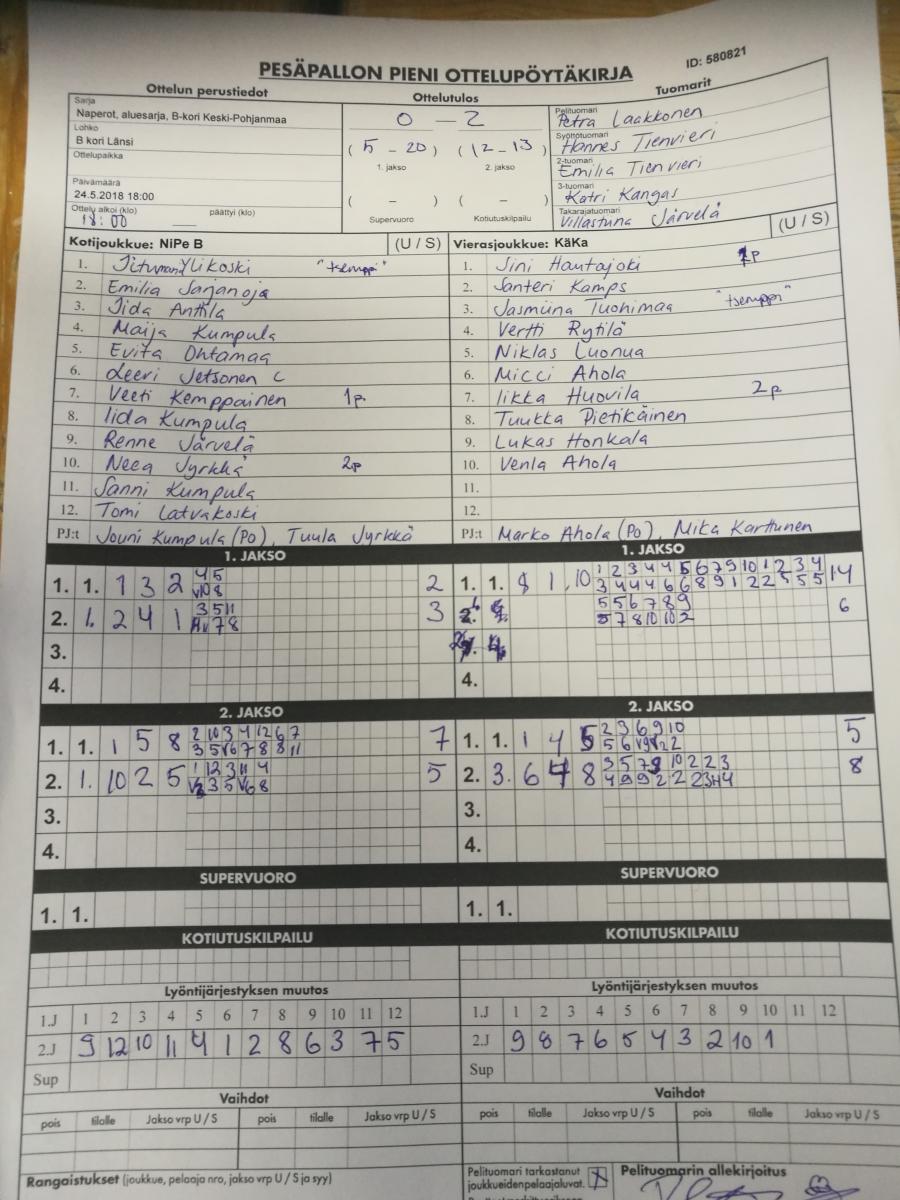 PESÄPALLON PIENI OTTELUPÖYTÄKIRJA
ID: 580821
Ottelun perustiedot
Ottelutulos
Tuomarit
Sarja
Naperot, aluesarja, B-kori Keski-Pohjanmaa
Lohko
B kori Länsi
Ottelupaikka
Päivämäärä
24.5.2018 18:00
Ottelu alkoi (klo) päättyi (klo)
18:00
0 — 2
(5 - 20) (12 - 13)
1. jakso 2. jakso
( - ) ( - )
Supervuoro Kotiutuskilpailu
Pelituomari
Petra Laakkonen
Syöttötuomari
Hannes Tienvieri
2-tuomari
Emilia Tienvieri
3-tuomari
Katri Kangas
Takarajatuomari
Villastuna Järvelä
Kotijoukkue: NiPe B (U / S)
1. Ylikoski "tsemppi"
2. Emilia Sarjanoja
3. Iida Anttila
4. Maija Kumpula
5. Evita Ohtamaa
6. Leevi Jetsonen C
7. Veeti Kemppainen 1p.
8. Iida Kumpula
9. Renne Järvelä
10. Neea Jyrkkä 2p
11. Sanni Kumpula
12. Tomi Latvakoski
PJ:t Jouni Kumpula (PO), Tuula Jyrkkä
Vierasjoukkue: KäKa (U / S)
1. Sini Hautajoki 1p
2. Santeri Kamps
3. Jasmiina Tuohimaa "tsemppi"
4. Vertti Rytilä
5. Niklas Luonua
6. Micci Ahola
7. Iikka Huovila 2p
8. Tuukka Pietikäinen
9. Lukas Honkala
10. Venla Ahola
11.
12.
PJ:t Marko Ahola (PO), Mika Karttunen
1. JAKSO
1. 1. 1 3 2 2
2. 1. 2 4 1 3
3.
4.
1. JAKSO
1. 1. 14
6
4.
2. JAKSO
1. 1. 1 5 8 7
2. 1. 10 2 5 5
3.
4.
2. JAKSO
1. 1. 1 4 5 5
2. 3. 6 7 8 8
3.
4.
SUPERVUORO
1. 1.
SUPERVUORO
1. 1.
KOTIUTUSKILPAILU
KOTIUTUSKILPAILU
Lyöntijärjestyksen muutos
1.J 1 2 3 4 5 6 7 8 9 10 11 12
2.J 9 12 10 11 4 1 2 8 6 3 7 5
Sup
Lyöntijärjestyksen muutos
1.J 1 2 3 4 5 6 7 8 9 10 11 12
2.J 9 8 7 6 5 4 3 2 10 1
Sup
Vaihdot
pois tilalle Jakso vrp U / S pois tilalle Jakso vrp U / S
Vaihdot
pois tilalle Jakso vrp U / S pois tilalle Jakso vrp U / S
Rangaistukset (joukkue, pelaaja nro, jakso vrp U / S ja syy)
Pelituomari tarkastanut
joukkueidenpelaajaluvat. X
Pelituomarin allekirjoitus